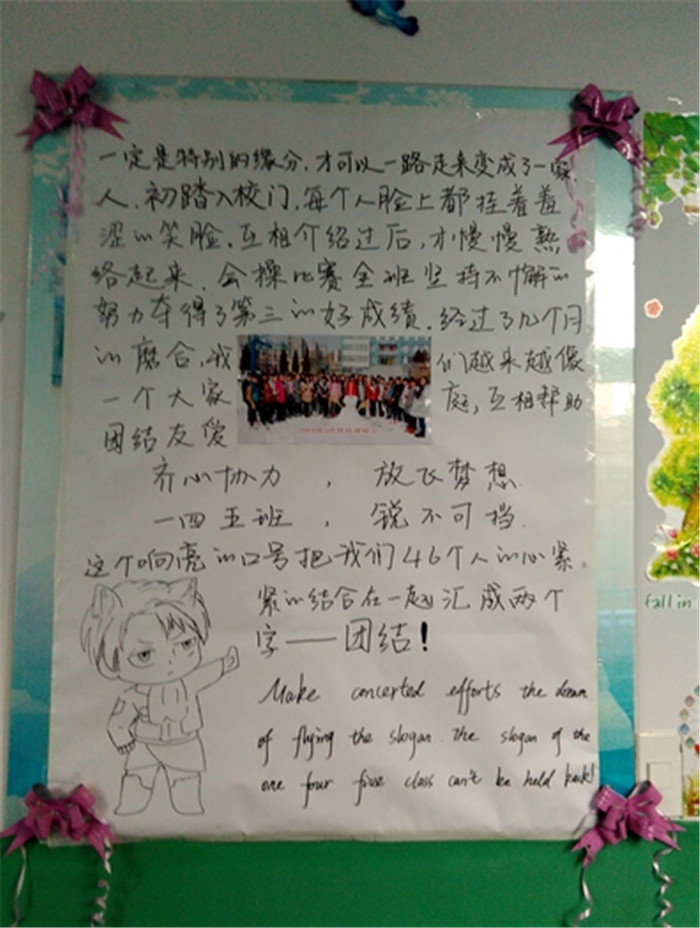 一定是特别的缘分，才可以一路走来变成了一家
人，初踏入校门，每个人脸上都挂着羞
涩的笑脸，互相介绍过后，才慢慢熟
络起来，会操比赛全班坚持不懈的
努力夺得了第三的好成绩，经过了几个月
的磨合，我们越来越像
一个大家庭，互相帮助
团结友爱
齐心协力，放飞梦想
一四五班，锐不可挡
这个响亮的口号把我们46个人的心紧
紧的结合在一起汇成两个
字——团结！
Make concerted efforts the dream
of flying the slogan. the slogan of the
one four five class can't be held back!
fall in